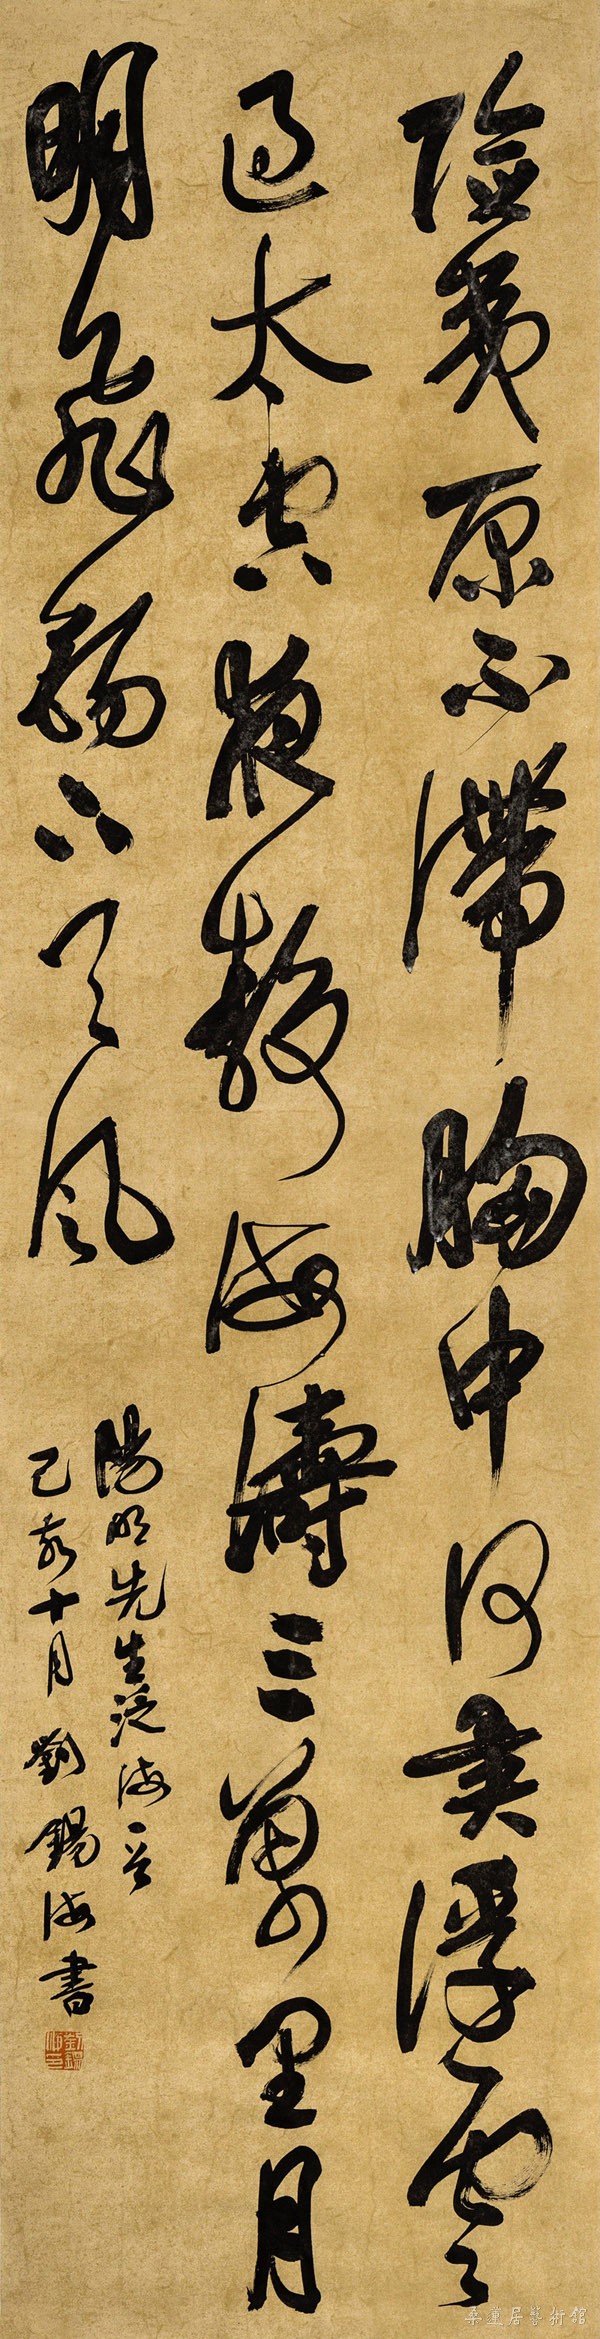 險夷原不滯胸中何異浮雲
過太空夜靜海濤三萬里月
明飛錫下天風
陽明先生泛海一首
己亥十月劉錫海書
桑蓮居藝術館